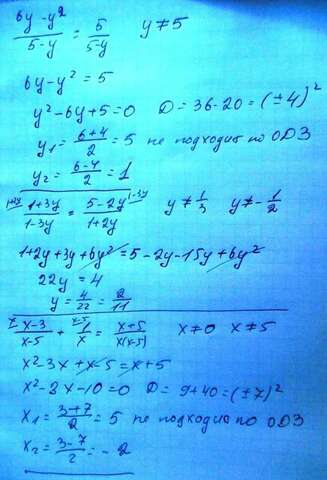 (6y - y²)/(5-y) = 5/(5-y)   y ≠ 5
6y - y² = 5
y² - 6y + 5 = 0   D = 36 - 20 = (±4)²
y₁ = (6+4)/2 = 5 не подходит по ОДЗ
y₂ = (6-4)/2 = 1
1+2y / (1+3y)/(1-3y) = (5-2y)/(1+2y) / 1-3y   y ≠ 1/3   y ≠ -1/2
1+2y+3y+6y² = 5-2y-15y+6y²
22y = 4
y = 4/22 = 2/11
x / (x-3)/(x-5) + x-5 / 1/x = (x+5)/(x(x-5))   x ≠ 0   x ≠ 5
x² - 3x + x - 5 = x + 5
x² - 3x - 10 = 0   D = 9 + 40 = (±7)²
x₁ = (3+7)/2 = 5 не подходит по ОДЗ
x₂ = (3-7)/2 = -2